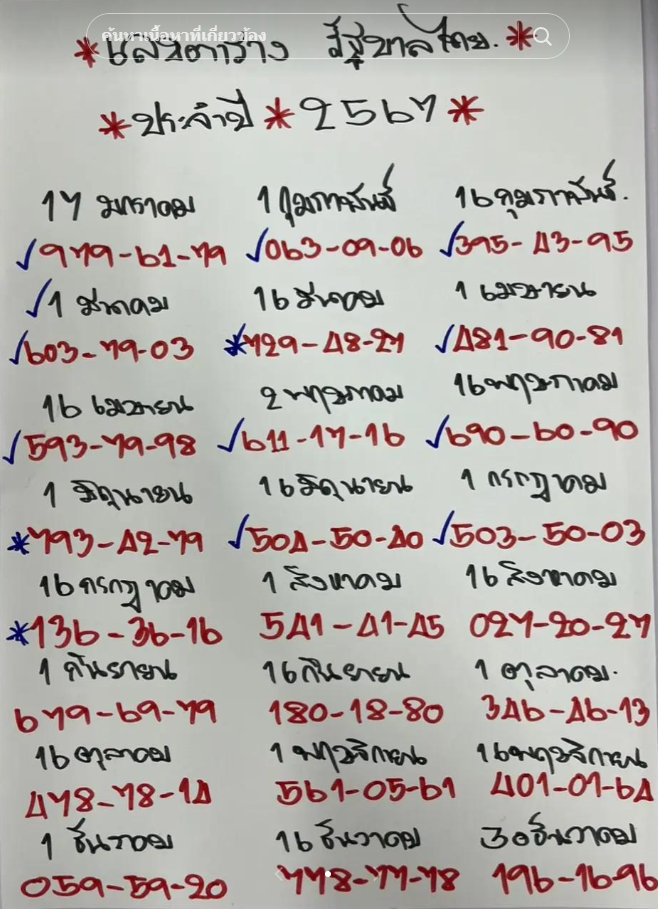 ค้นหาเนื้อหาที่เกี่ยวข้อง
*เลขตาราง รัฐบาลไทย.*
*ประจำปี * 2567 *
17 มกราคม 1 กุมภาพันธ์ 16 กุมภาพันธ์.
✓979-61-79 ✓063-09-06 ✓395-43-95
✓1 มีนาคม 16 มีนาคม 1 เมษายน
✓603-79-03 *729-48-27 ✓481-90-81
16 เมษายน 2 พฤษภาคม 16 พฤษภาคม
✓593-79-98 ✓611-17-16 ✓690-60-90
1 มิถุนายน 16 มิถุนายน 1 กรกฎาคม
*793-42-79 ✓504-50-40 ✓503-50-03
16 กรกฎาคม 1 สิงหาคม 16 สิงหาคม
*136-36-16 541-41-45 027-20-27
1 กันยายน 16 กันยายน 1 ตุลาคม.
679-69-79 180-18-80 346-46-13
16 ตุลาคม 1 พฤศจิกายน 16 พฤศจิกายน
478-78-14 561-05-61 401-07-64
1 ธันวาคม 16 ธันวาคม 30 ธันวาคม
059-59-20 778-77-78 196-16-96